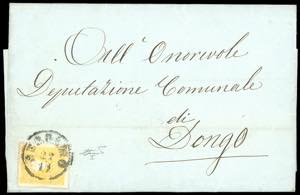 All' Onorevole
Deputazione Comunale
di
Dongo